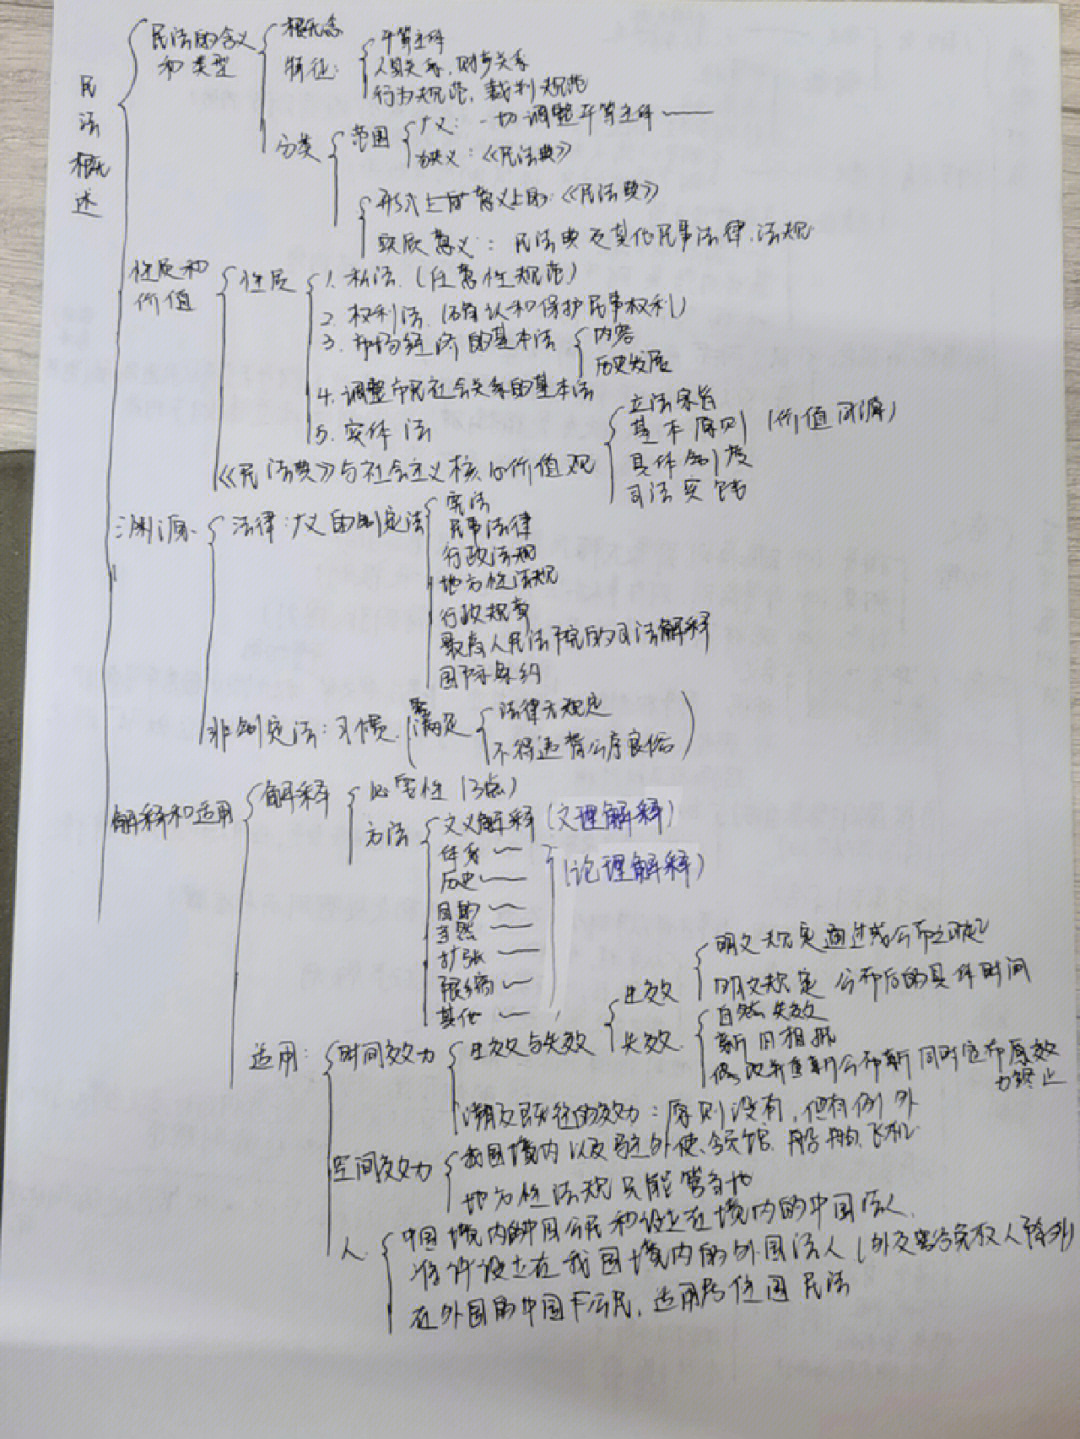 民法概述
民法的含义
和类型
概念
特征：
平等主体
人身关系，财产关系
行为规范，裁判规范
分类
范围
广义：一切调整平等主体——
狭义：《民法典》
形式上的意义上的：《民法典》
实质意义：民法典及其他民事法律、法规
性质和
价值
性质
1. 私法（任意性规范）
2. 权利法（确认和保护民事权利）
3. 市场经济的基本法
内容
历史发展
4. 调整市民社会关系的基本法
5. 实体法
《民法典》与社会主义核心价值观
立法宗旨
基本原则（价值同源）
具体制度
司法实践
渊源
法律：广义的制定法
宪法
民事法律
行政法规
地方性法规
行政规章
最高人民法院的司法解释
国际条约
非制定法：习惯（需满足
法律无规定
不得违背公序良俗）
解释和适用
解释
必要性（3点）
方法
文义解释（文理解释）
体系〜
历史〜
（论理解释）
目的〜
当然〜
扩张〜
限缩〜
其他〜
适用：
时间效力
生效与失效
生效
明文规定通过或公布之
明文规定 公布后的具体时间
失效
自然失效
新旧相抵
修改并重新公布新 同时宣布原效
力终止
溯及既往的效力：原则没有，但有例外
空间效力
我国境内以及驻外使、领馆、船舶、飞机
地方性法规只能管当地
人
中国境内的中国公民和设立在境内的中国法人、
准许设立在我国境内的外国法人（外交豁免权人除外）
在外国的中国公民，适用居住国民法